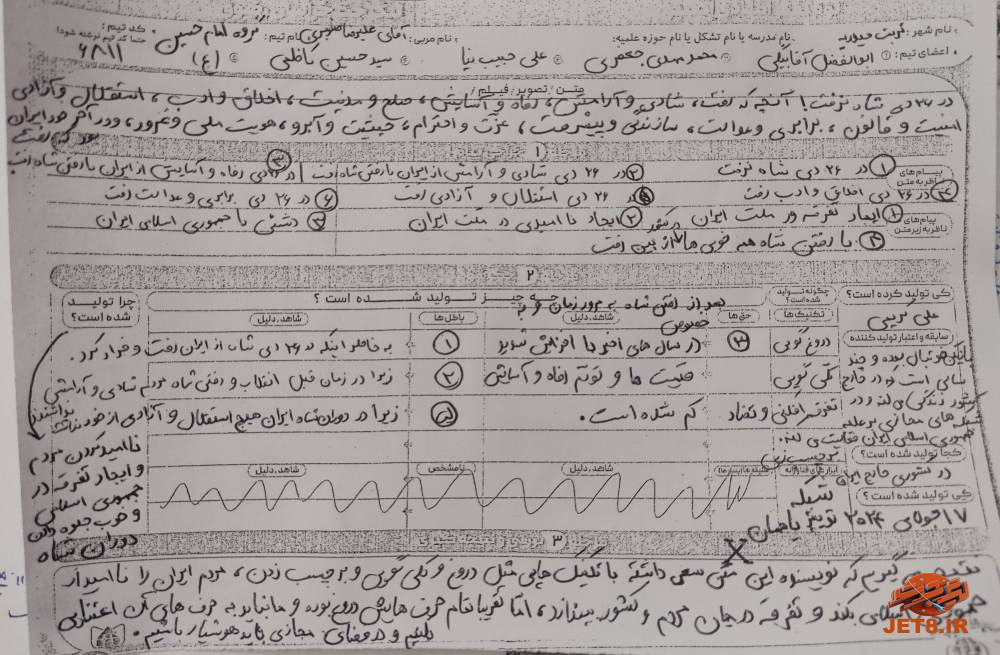 نام شهر: تربت حیدریه نام مدرسه یا نام تشکل یا نام حوزه علمیه: نام مربی: آقای علیرضا منوری نام تیم: گروه امام حسین (ع) کد تیم: ۶۸۱۱
حتما کد تیم نوشته شود!
اعضای تیم: ① ابوالفضل آقابیگی ② محمدمهدی جعفری ③ علی حبیب نیا ④ سید حسین کاظمی
متن/تصویر/فیلم
در ۲۶ دی شاه نرفت! آنچه که رفت، شادی و آرامش، رفاه و آسایش، صلح و مدنیت، اخلاق و ادب، استقلال و آزادی
امنیت و قانون، برابری و عدالت، سازندگی و پیشرفت، عزت و احترام، حیثیت و آبرو، هویت ملی و غرور، و در آخر خود ایران بود که رفت
۱
پیام‌های ناظر به متن
① در ۲۶ دی شاه نرفت ② در ۲۶ دی شادی و آرامش از ایران با رفتن شاه رفت ③ در ۲۶ دی رفاه و آسایش از ایران با رفتن شاه رفت
④ در ۲۶ دی اخلاق و ادب رفت ⑤ در ۲۶ دی استقلال و آزادی رفت ⑥ در ۲۶ دی برابری و عدالت رفت
پیام‌های ناظر به زیر متن
① ایجاد تفرقه در ملت ایران ② ایجاد ناامیدی در ملت ایران ③ دشمنی با جمهوری اسلامی ایران
④ با رفتن شاه همه خوبی ها در کشور از بین رفت
۲
کی تولید کرده است؟ چگونه تولید شده است؟ چه چیز تولید شده است؟ چرا تولید شده است؟
علی کریمی تکنیک‌ها حق‌ها شاهد، دلیل باطل‌ها شاهد، دلیل
بعد از رفتن شاه به مرور زمان و به خصوص
سابقه و اعتبار تولید کننده
دروغ گویی ③ در سال های اخیر با افزایش شدید ① به خاطر اینکه در ۲۶ دی شاه از ایران رفت و فرار کرد.
کلی گویی قیمت ها و تورم رفاه و آسایش ② زیرا در زمان قبل انقلاب و رفتن شاه مردم شادی و آرامشی نداشتند
تفرقه افکنی و تضاد کم شده است. ⑤ زیرا در دوران شاه ایران هیچ استقلال و آزادی از خود نداشت
برچسب زنی
بازیکن فوتبال بوده و چند
سالی است که در خارج
کشور زندگی می کند و در
شبکه های مجازی بر علیه
جمهوری اسلامی ایران فعالیت می کند.
ناامید کردن مردم
و ایجاد تفرقه در
جمهوری اسلامی
و خوب جلوه دادن
دوران شاه
کجا تولید شده است؟
در کشوری خارج ایران
ابزارهای فناورانه شاهد، دلیل نامشخص شاهد، دلیل
شبکه X
کی تولید شده است؟
۱۷ جولای ۲۰۲۴ توییتر یا همان
۳
نتیجه می گیریم که نویسنده این متن سعی داشته با تکنیک هایی مثل دروغ و کلی گویی و برچسب زدن، مردم ایران را ناامید از
جمهوری اسلامی بکند و تفرقه در میان مردم و کشور بیندازد، اما تقریبا تمام حرف هایش دروغ بوده و ما نباید به حرف های آن اعتنایی
بکنیم و در فضای مجازی باید هوشیار باشیم.
JET8.IR